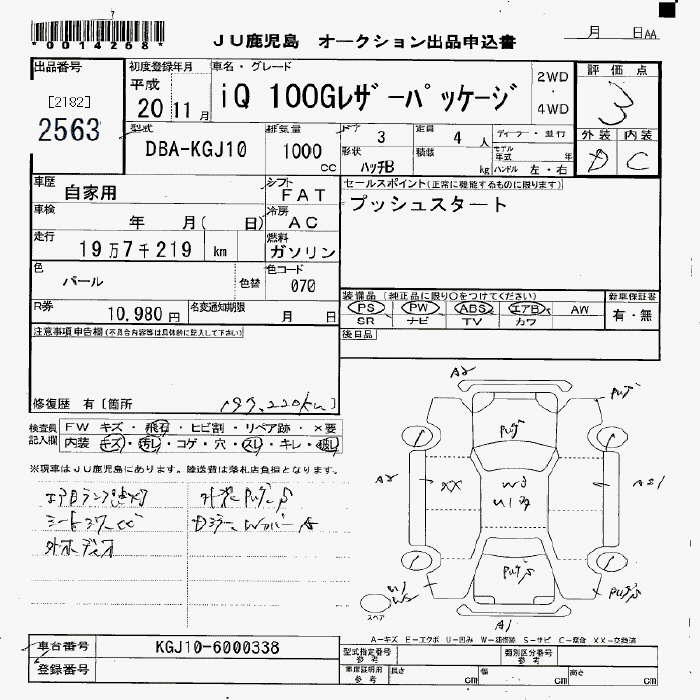 *0014268*
JU鹿児島 オークション出品申込書
月 日 AA
出品番号 [2182] 2563
初度登録年月 平成 20 11月
車名・グレード iQ 100Gレザーパッケージ
2WD ・ 4WD
評価点 3
外装 内装
D C
型式 DBA-KGJ10
排気量 1000 cc
ドア 3
定員 4 人
ディーラー・並行
形状 ハッチB
積載 kg
モデル年式 年
ハンドル 左・右
車歴 自家用
シフト FAT
車検 年 月( 日)
冷房 AC
走行 19万7千219 km
燃料 ガソリン
色 パール
色替
色コード 070
R券 10,980円
名変通知期限 月 日
セールスポイント(正常に機能するものに限ります)
プッシュスタート
装備品(純正品に限り○をつけてください)
PS PW ABS エアB AW
SR ナビ TV カワ
新車保証書
有・無
後日品
注意事項申告欄(不具合内容等は具体的に記入して下さい)
修復歴 有[箇所 197,220km]
検査員記入欄
FW キズ・飛石・ヒビ割・リペア跡・×要
内装 キズ・汚レ・コゲ・穴・スレ・キレ・破レ
※現車はJU鹿児島にあります。陸送費は落札店負担となります。
エアBランプ点灯
外オーディオ
A2
A2
XX
W3
A1
スペア
A-キズ E-エクボ U-凹み W-補修跡 S-サビ C-腐食 XX-交換済
車台番号 KGJ10-6000338
登録番号
型式指定番号 参考
類別区分番号 参考
車庫証明用 参考
長さ cm
幅 cm
高さ cm